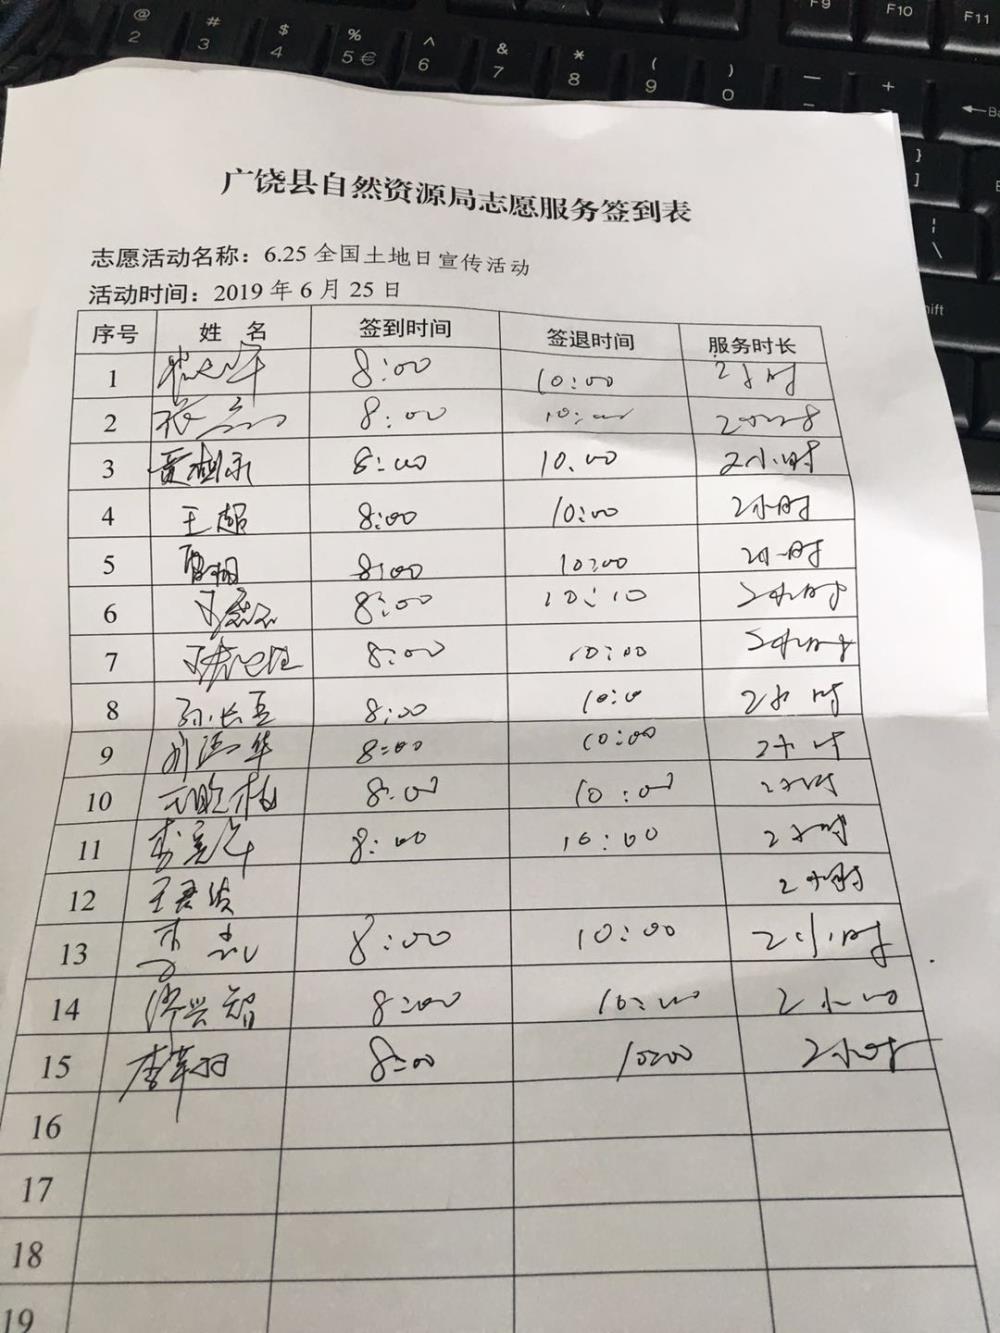 @ 2
# 3
$ 4
% 5 €
^ 6
& 7
* 8
( 9
) 0
F9
F10
F11
广饶县自然资源局志愿服务签到表
志愿活动名称：6.25 全国土地日宣传活动
活动时间：2019 年 6 月 25 日
序号 姓 名 签到时间 签退时间 服务时长
1 8:00 10:00 2小时
2 8:00 10:00
3 8:00 10.00 2小时
4 王超 8:00 10:00 2小时
5 8:00 10:00 2小时
6 8:00 10:10 2小时
7 8:00 10:00 2小时
8 孙长 8:00 10:0 2小时
9 华 8:00 10:00 2小时
10 8:00 10:00 2小时
11 李 8:00 10:00 2小时
12 王 2小时
13 8:00 10:00 2小时
14 兴智 8:00 10:00 2小
15 李 羽 8:00 10:00 2小时
16
17
18
19